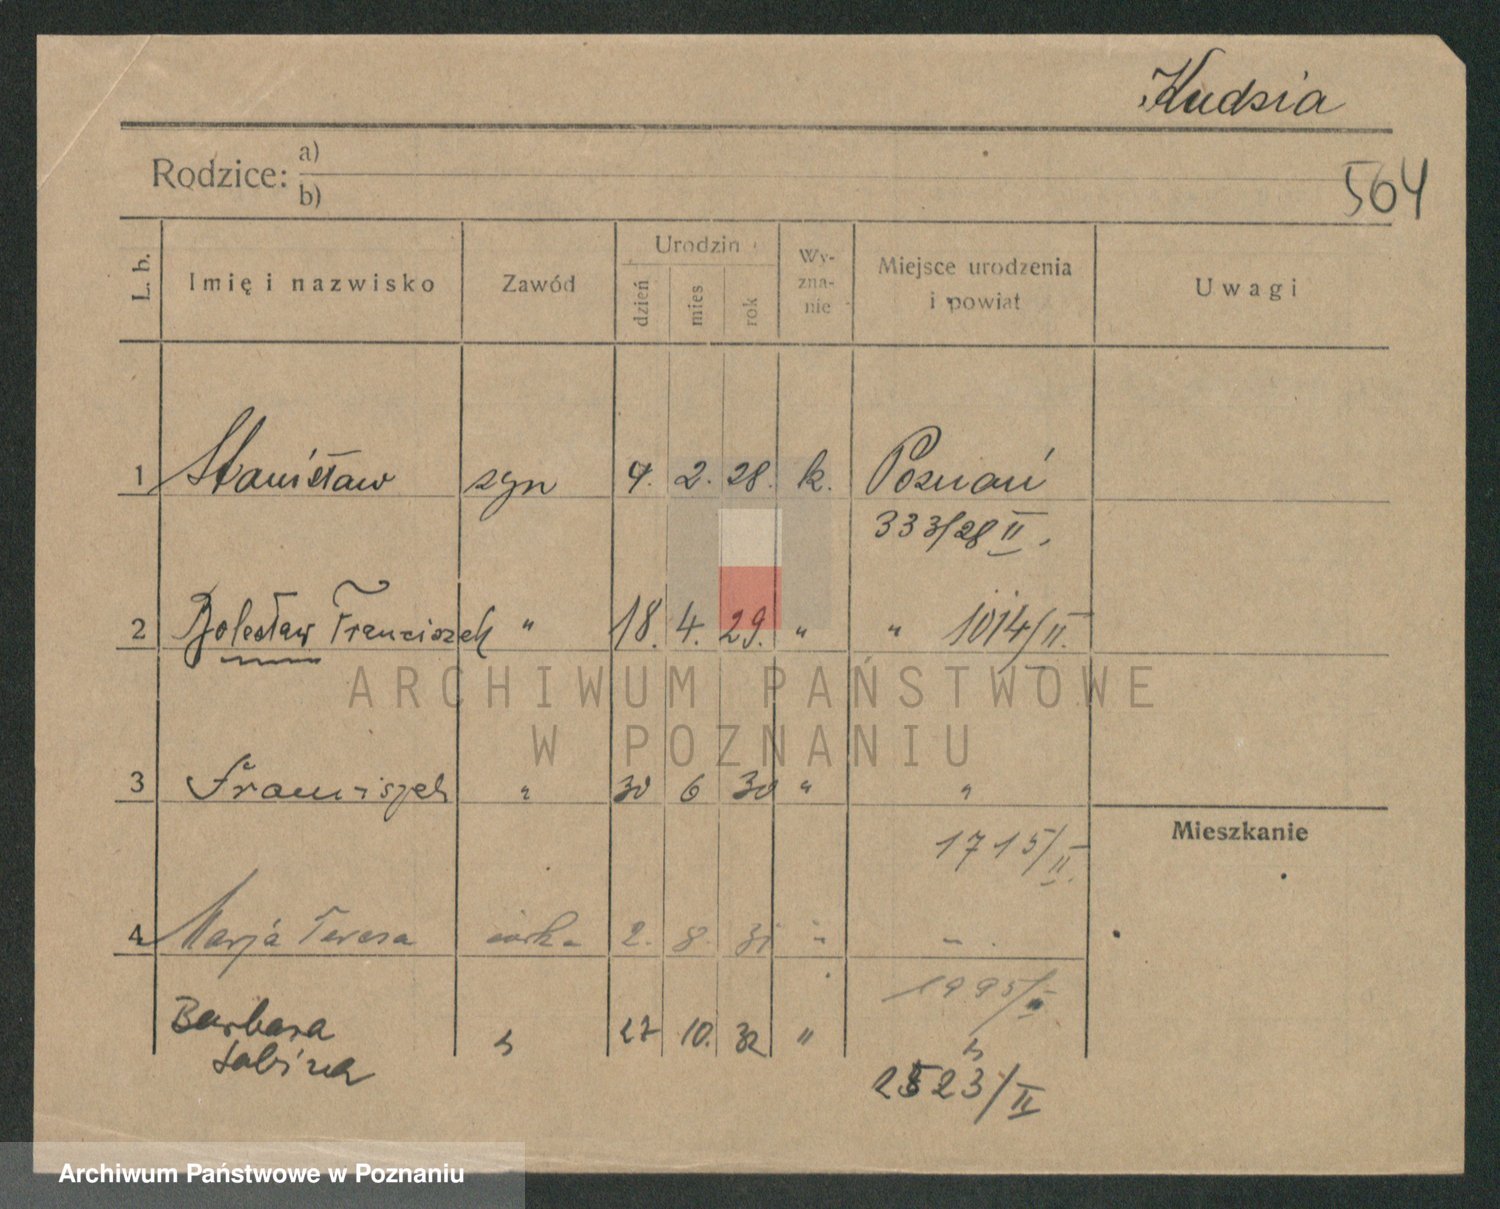 Kudsia
564
Rodzice: a)
b)
L. b. Imię i nazwisko Zawód Urodzin dzień mies rok Wy-zna-nie Miejsce urodzenia i powiat Uwagi
1 Stanisław syn 4. 2. 28. k. Poznań
333/28 II.
2 Bolesław Franciszek " 18. 4. 29. " " 1014/II.
ARCHIWUM PAŃSTWOWE
W POZNANIU
3 Franciszek " 30 6 30 " "
1715/II.
Mieszkanie
4 Marja Teresa córka 2. 8. 31 " "
1995/II
Barbara 27 10. 32 "
Sabina
2523/II
Archiwum Państwowe w Poznaniu